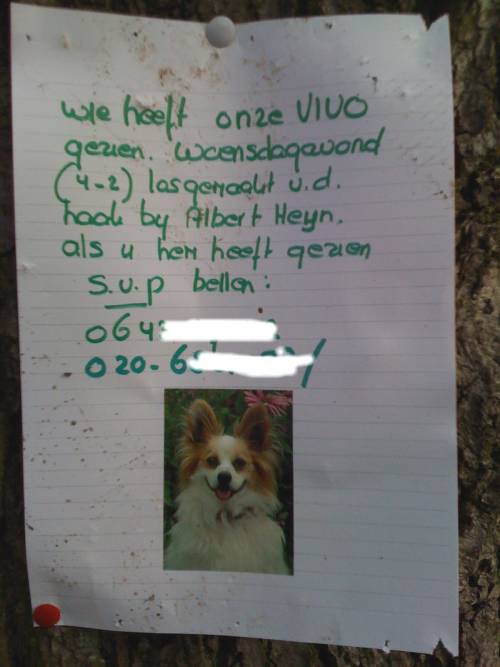 wie heeft onze VIVO
gezien. woensdagavond
(4-2) losgemaakt v.d.
haak by Albert Heyn.
als u hem heeft gezien
S.v.p bellen:
064
020-6